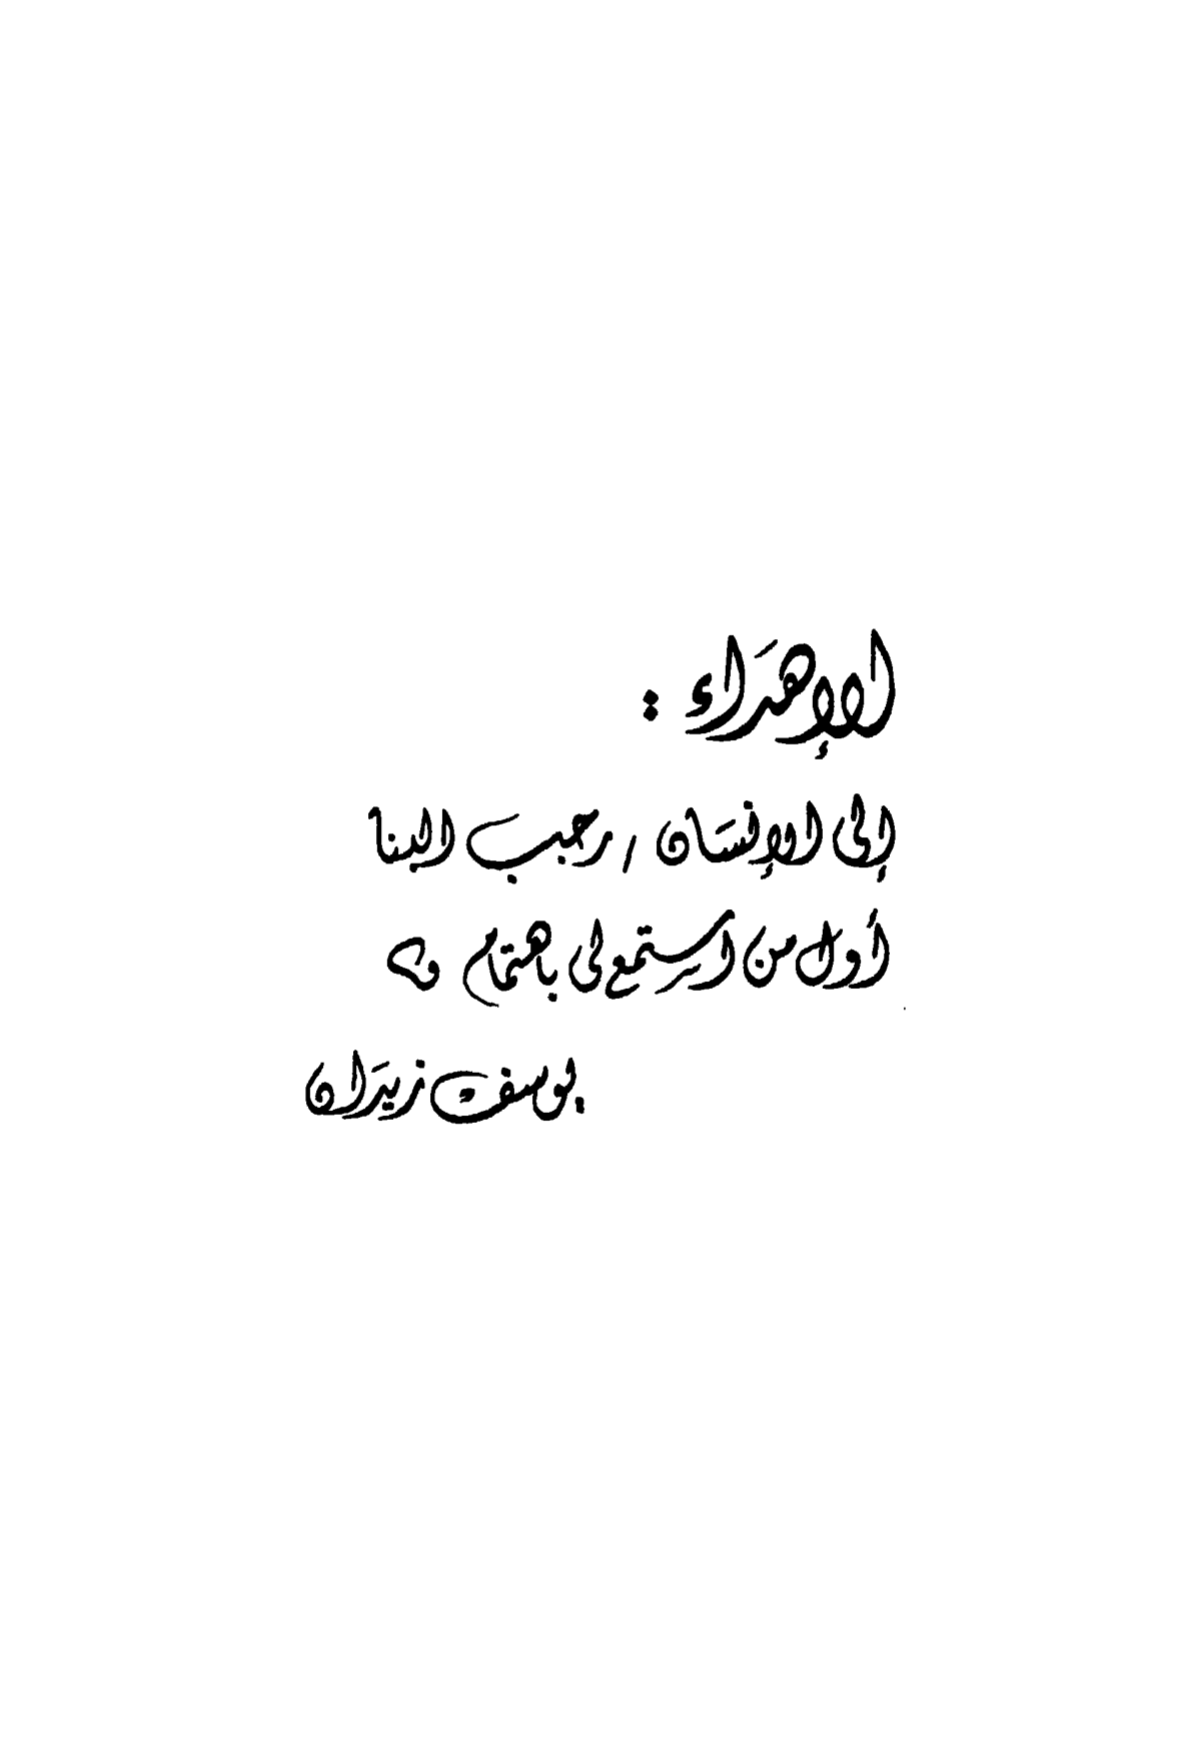 الإهدَاء :
إلى الإنسَان / رجب البنا
أول من استمع لى باهتمام
يوسف زيدَان